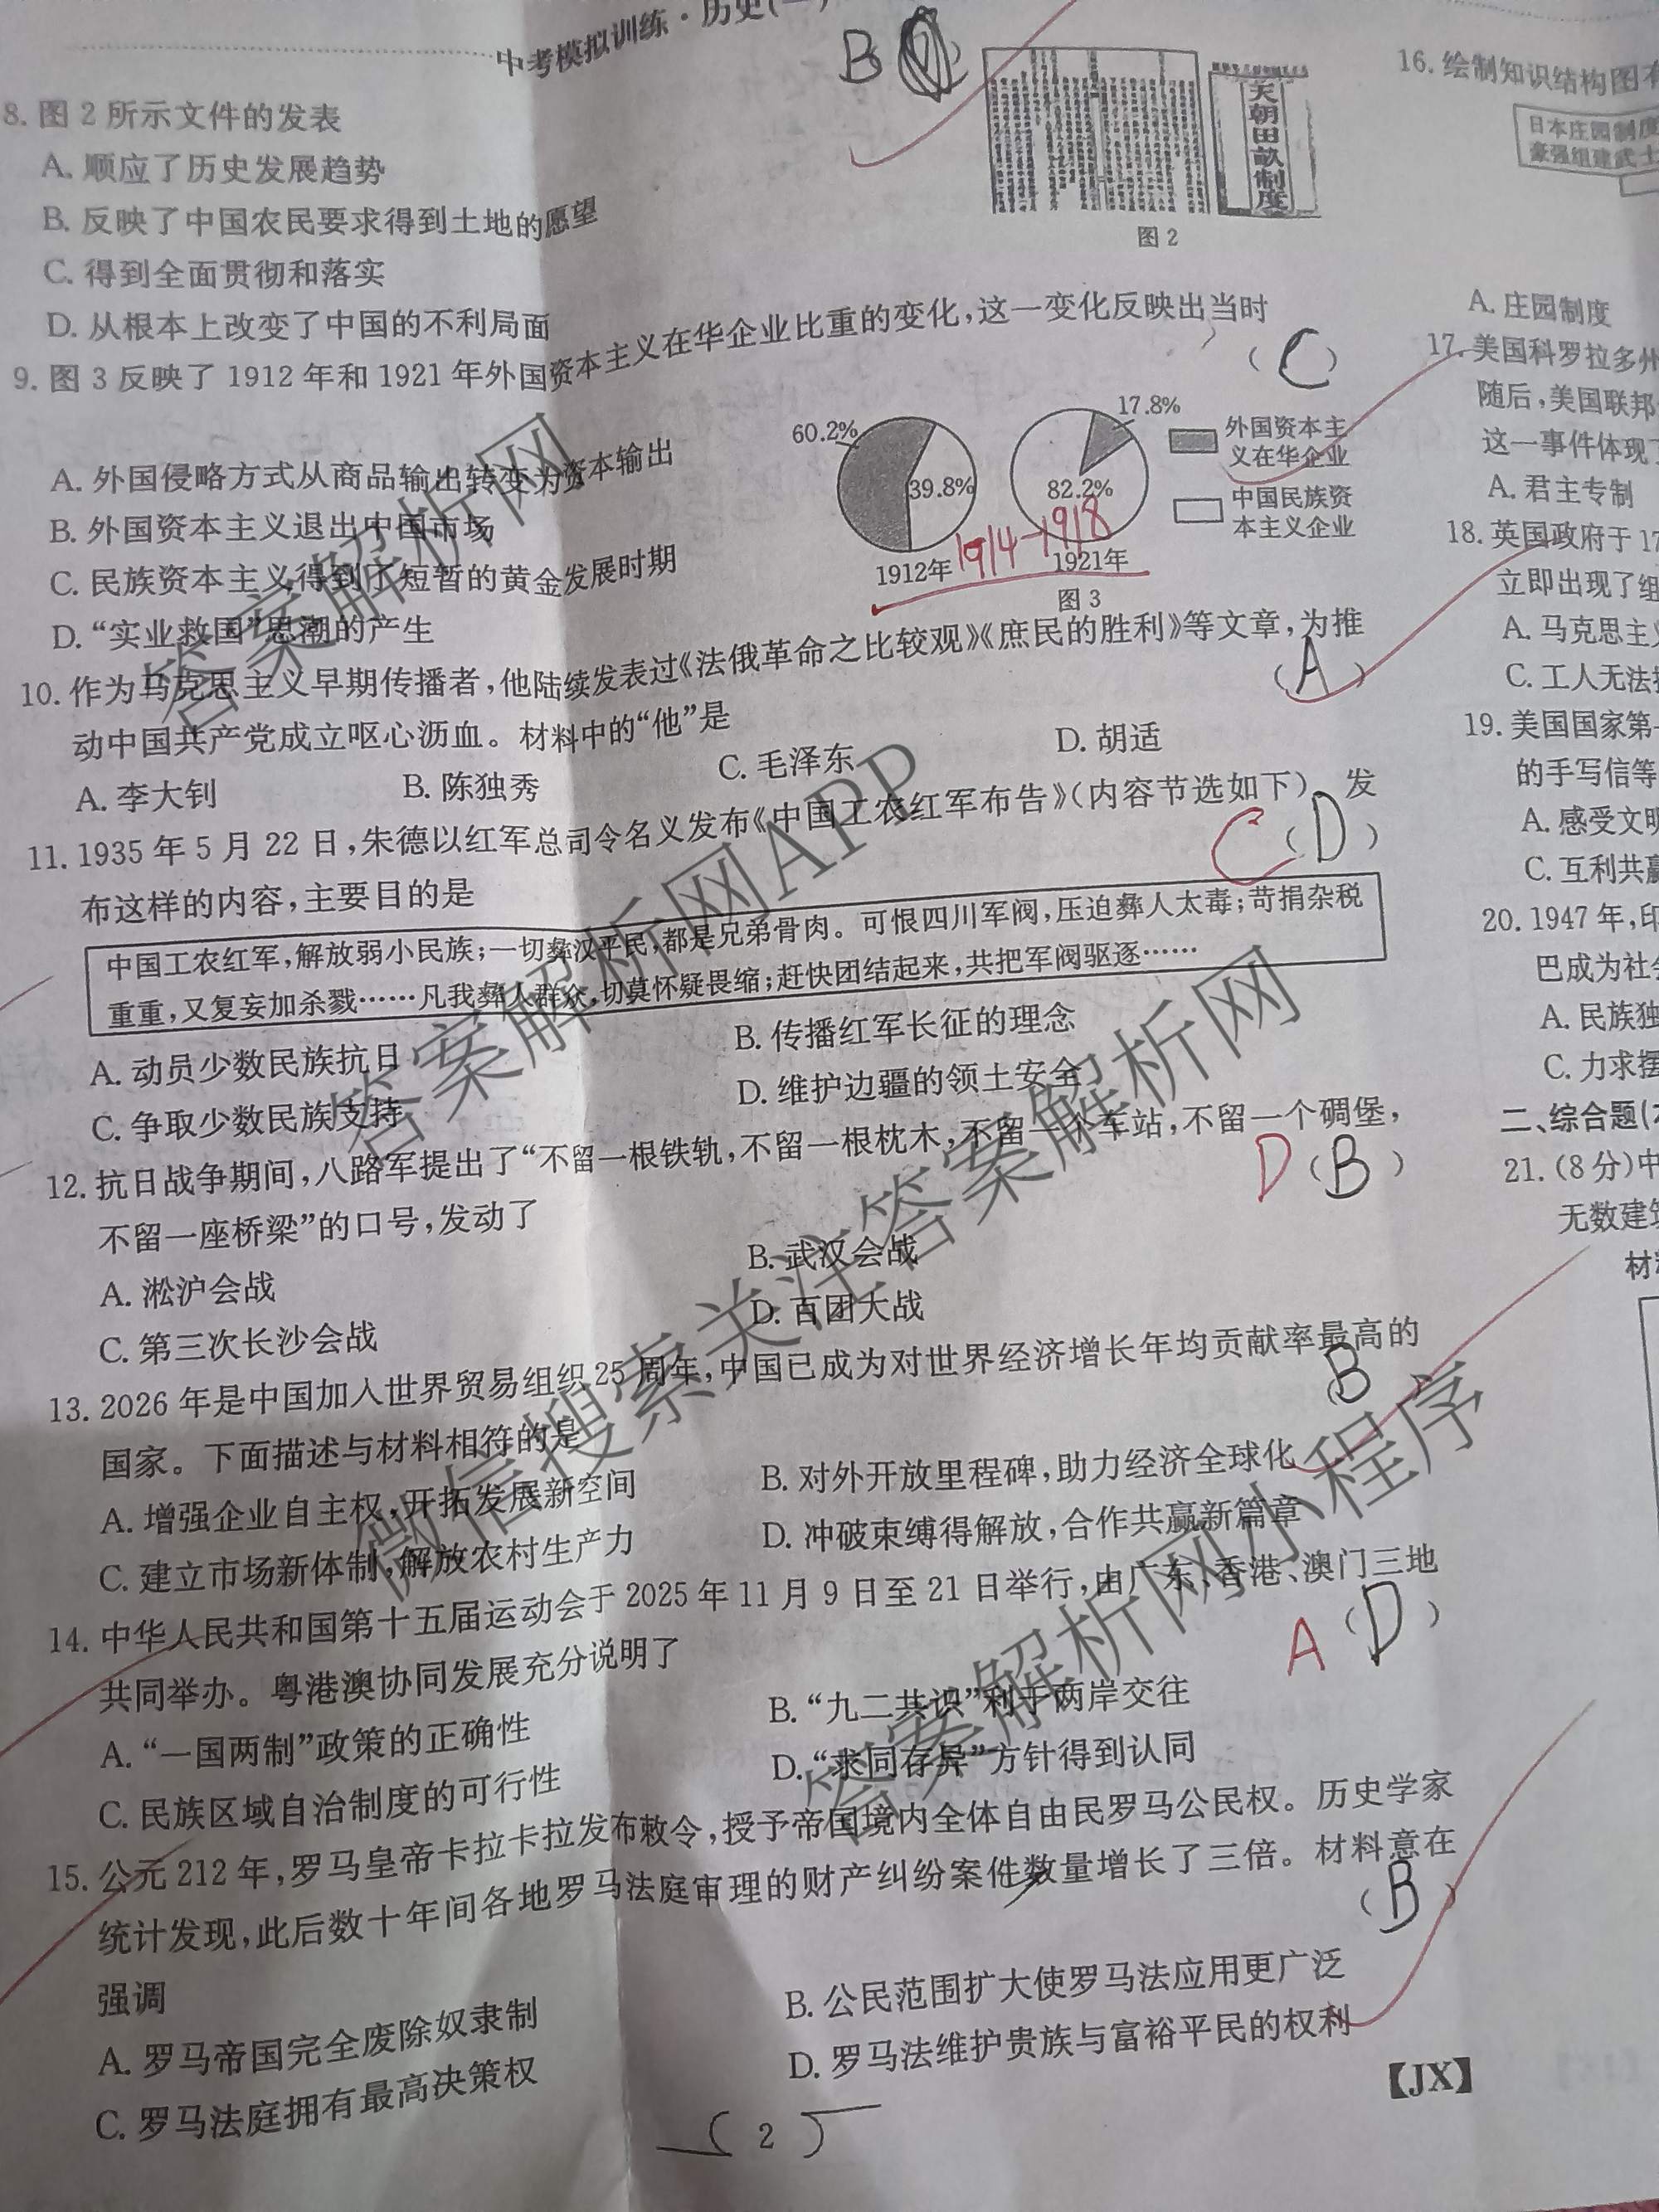 中考模拟训练·历史(一)
8. 图 2 所示文件的发表
B
A. 顺应了历史发展趋势
B. 反映了中国农民要求得到土地的愿望
C. 得到全面贯彻和落实
D. 从根本上改变了中国的不利局面
天朝田畝制度
图 2
9. 图 3 反映了 1912 年和 1921 年外国资本主义在华企业比重的变化,这一变化反映出当时
(C)
A. 外国侵略方式从商品输出转变为资本输出
B. 外国资本主义退出中国市场
C. 民族资本主义得到了短暂的黄金发展时期
D. “实业救国”思潮的产生
60.2%
39.8%
17.8%
82.2%
外国资本主
义在华企业
中国民族资
本主义企业
1912年
1914-1918
1921年
图 3
10. 作为马克思主义早期传播者,他陆续发表过《法俄革命之比较观》《庶民的胜利》等文章,为推
动中国共产党成立呕心沥血。材料中的“他”是
(A)
A. 李大钊
B. 陈独秀
C. 毛泽东
D. 胡适
11. 1935 年 5 月 22 日,朱德以红军总司令名义发布《中国工农红军布告》(内容节选如下)。发
布这样的内容,主要目的是
C (D)
中国工农红军,解放弱小民族;一切彝汉平民,都是兄弟骨肉。可恨四川军阀,压迫彝人太毒;苛捐杂税
重重,又复妄加杀戮……凡我彝人群众,切莫怀疑畏缩;赶快团结起来,共把军阀驱逐……
A. 动员少数民族抗日
B. 传播红军长征的理念
C. 争取少数民族支持
D. 维护边疆的领土安全
12. 抗日战争期间,八路军提出了“不留一根铁轨,不留一根枕木,不留一个车站,不留一个碉堡,
不留一座桥梁”的口号,发动了
D (B)
A. 淞沪会战
B. 武汉会战
C. 第三次长沙会战
D. 百团大战
13. 2026 年是中国加入世界贸易组织 25 周年,中国已成为对世界经济增长年均贡献率最高的
国家。下面描述与材料相符的是
(B)
A. 增强企业自主权,开拓发展新空间
B. 对外开放里程碑,助力经济全球化
C. 建立市场新体制,解放农村生产力
D. 冲破束缚得解放,合作共赢新篇章
14. 中华人民共和国第十五届运动会于 2025 年 11 月 9 日至 21 日举行,由广东、香港、澳门三地
共同举办。粤港澳协同发展充分说明了
A (D)
A. “一国两制”政策的正确性
B. “九二共识”利于两岸交往
C. 民族区域自治制度的可行性
D. “求同存异”方针得到认同
15. 公元 212 年,罗马皇帝卡拉卡拉发布敕令,授予帝国境内全体自由民罗马公民权。历史学家
统计发现,此后数十年间各地罗马法庭审理的财产纠纷案件数量增长了三倍。材料意在
强调
(B)
A. 罗马帝国完全废除奴隶制
B. 公民范围扩大使罗马法应用更广泛
C. 罗马法庭拥有最高决策权
D. 罗马法维护贵族与富裕平民的权利
【JX】
2
16. 绘制知识结构图
日本庄园制度
豪强组建武士
A. 庄园制度
17. 美国科罗拉多州
随后,美国联邦
这一事件体现
A. 君主专制
18. 英国政府于 17
立即出现了组
A. 马克思主
C. 工人无法
19. 美国国家第
的手写信等
A. 感受文明
C. 互利共赢
20. 1947 年,印
巴成为社会
A. 民族独
C. 力求摆
二、综合题(
21. (8 分)中
无数建筑
材料
答案解析网
答案解析网APP
微信搜索关注答案解析网
答案解析网小程序